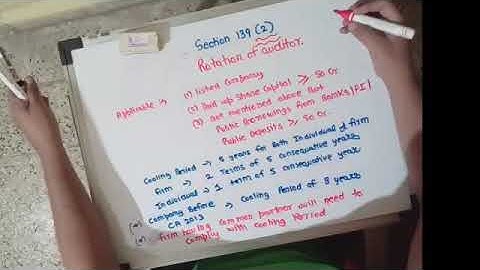 Section 139 (2)
Rotation of auditor.
Applicable :-
(1) Listed Company
(2) Paid up Share Capital ≥ 50 Cr.
(3) are mentioned above But
Public Borrowings from Banks/FI/
Public Deposits ≥ 50 Cr.
Cooling Period → 5 years for Both Individual & firm
Firm → 2 Terms of 5 consequative years
Individual → 1 term of 5 consequative year
Company Before → Cooling Period of 3 years
CA 2013
Firm having common partner will need to
comply with cooling Period